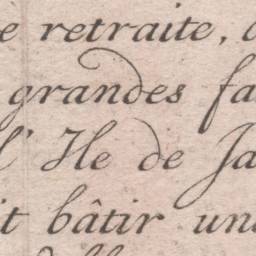 retraite,
grandes fa
l'Ile de Ja
it bâtir un